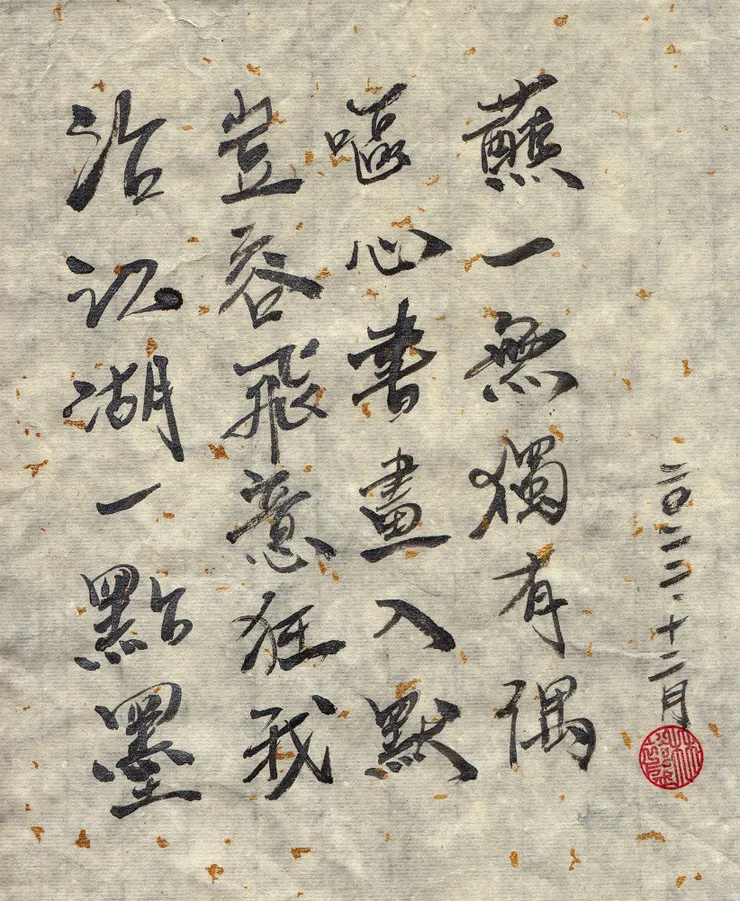 二〇二二.十二月
蘸一無獨有隅
嘔心書畫入默
豈容飛意狂我
沾江湖一點墨